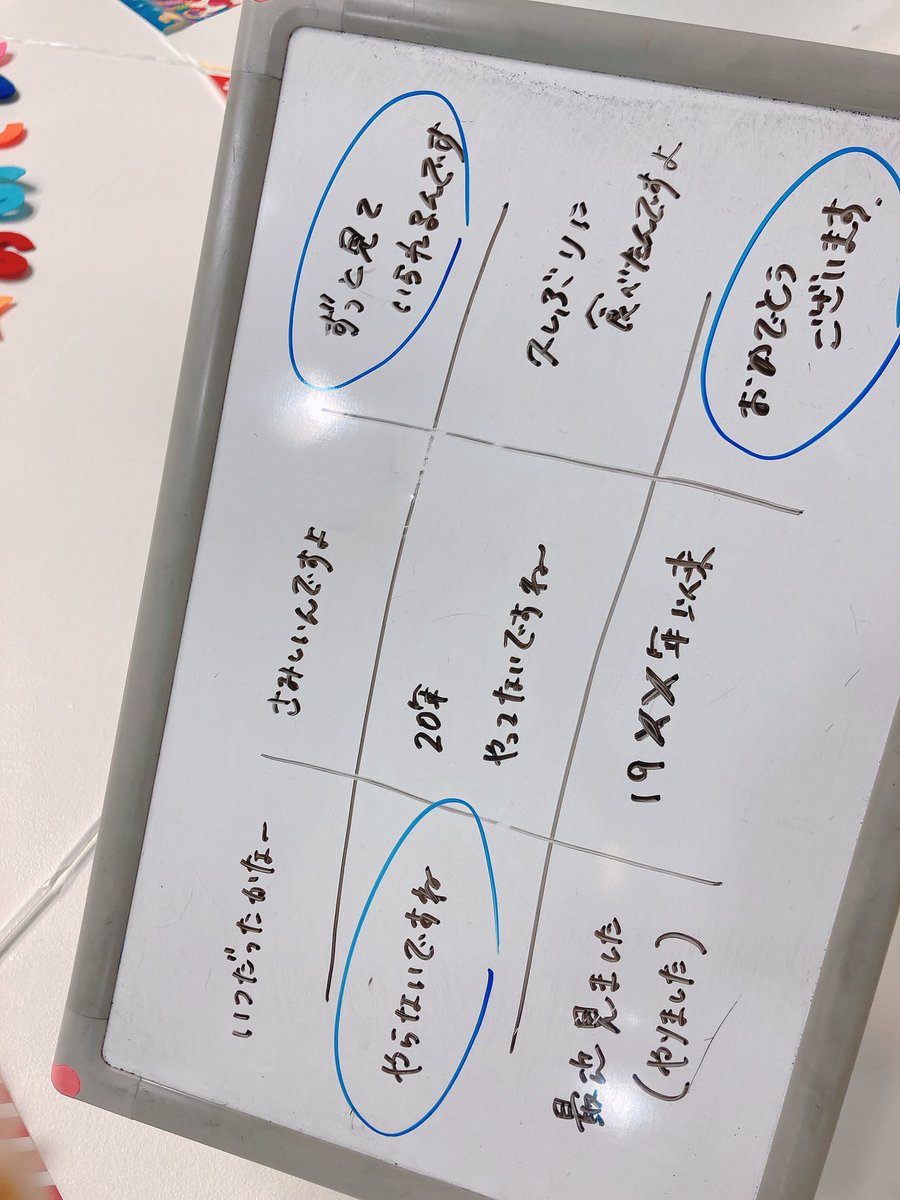 いつだったかなー
さみしいんですよ
ずっと見て
いられるんです
やらないですね
20年
やってないですね
久しぶりに
食べたんですよ
最近見ました
(やりました)
19XX年以来
おめでとう
ございます.